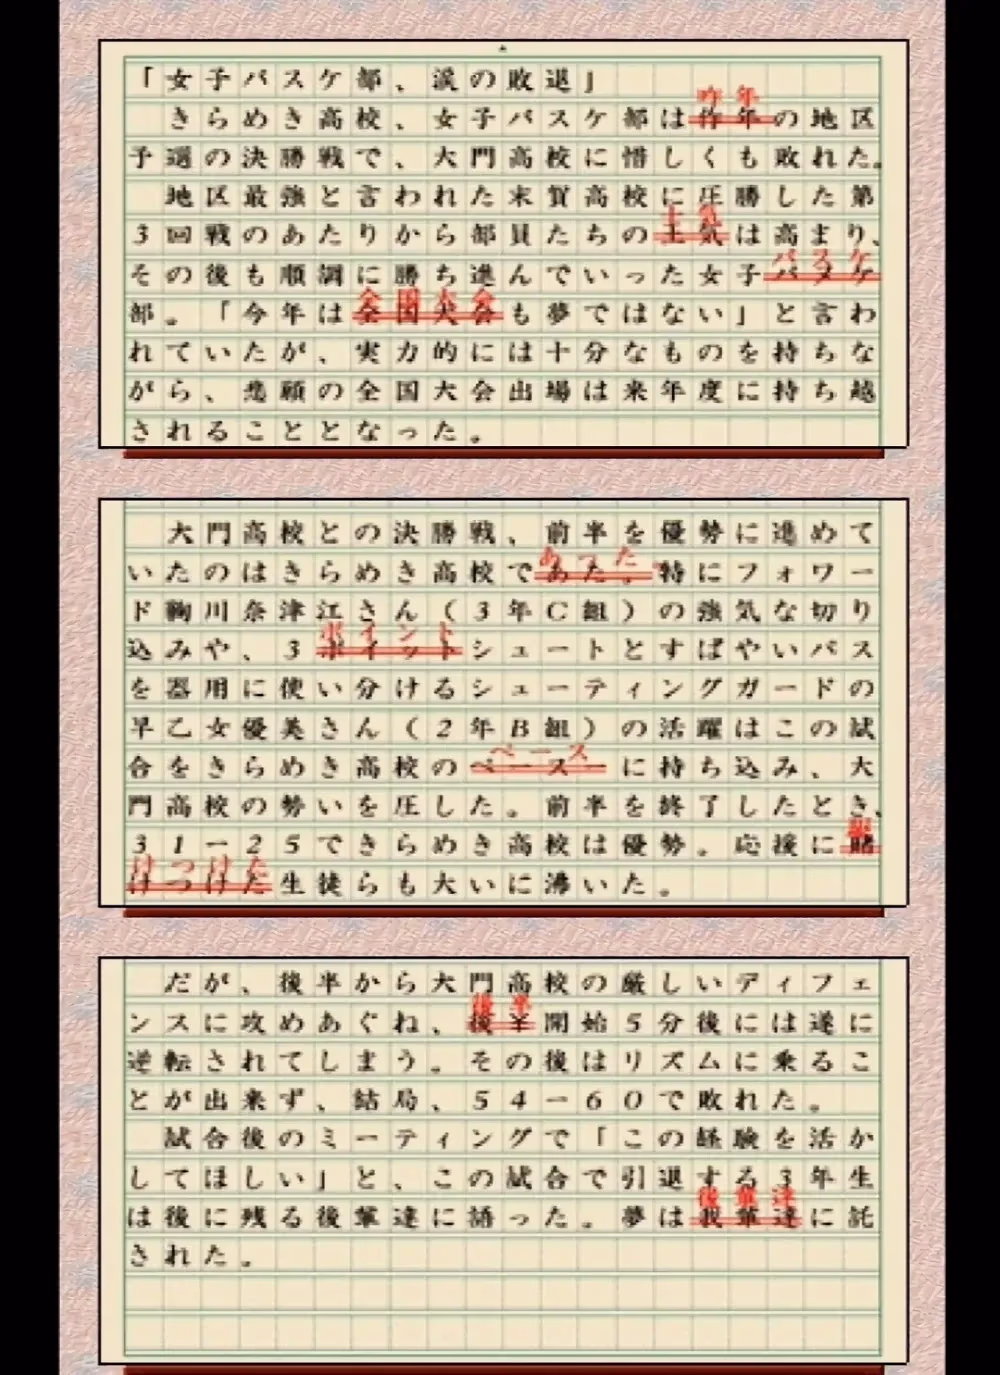 「女子バスケ部、涙の敗退」
昨年
きらめき高校、女子バスケ部は作年の地区
予選の決勝戦で、大門高校に惜しくも敗れた。
地区最強と言われた末賀高校に圧勝した第
士気
3回戦のあたりから部員たちの土気は高まり、
バスケ
その後も順調に勝ち進んでいった女子バヌケ
全国大会
部。「今年は全国犬会も夢ではない」と言わ
れていたが、実力的には十分なものを持ちな
がら、悲願の全国大会出場は来年度に持ち越
されることとなった。
大門高校との決勝戦、前半を優勢に進めて
あった。
いたのはきらめき高校であた。特にフォワー
ド鞠川奈津江さん(3年C組)の強気な切り
ポイント
込みや、3ポイットシュートとすばやいパス
を器用に使い分けるシューティングガードの
早乙女優美さん(2年B組)の活躍はこの試
ペース
合をきらめき高校のベースに持ち込み、大
門高校の勢いを圧した。前半を終了したとき、
駆
31-25できらめき高校は優勢。応援に賭
けつけた
けつけた生徒らも大いに沸いた。
だが、後半から大門高校の厳しいディフェ
後半
ンスに攻めあぐね、後￥開始5分後には遂に
逆転されてしまう。その後はリズムに乗るこ
とが出来ず、結局、54-60で敗れた。
試合後のミーティングで「この経験を活か
してほしい」と、この試合で引退する3年生
後輩達
は後に残る後輩達に語った。夢は我輩達に託
された。